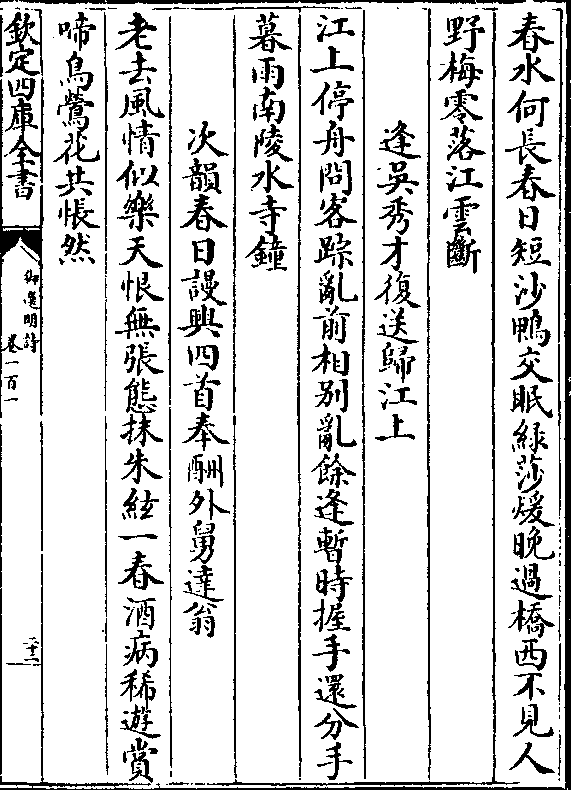 春水何長春日短沙鴨交眠緑莎煖晚過橋西不見人
野梅零落江雲斷
逢吳秀才復送歸江上
江上停舟問客踪亂前相别亂餘逢暫時握手還分手
暮雨南陵水寺鐘
次韻春日謾興四首奉酬外舅達翁
老去風情似樂天恨無張態抹朱絃一春酒病稀遊賞
啼鳥鶯花共悵然
欽定四庫全書
御選明詩
卷一百一
二十二